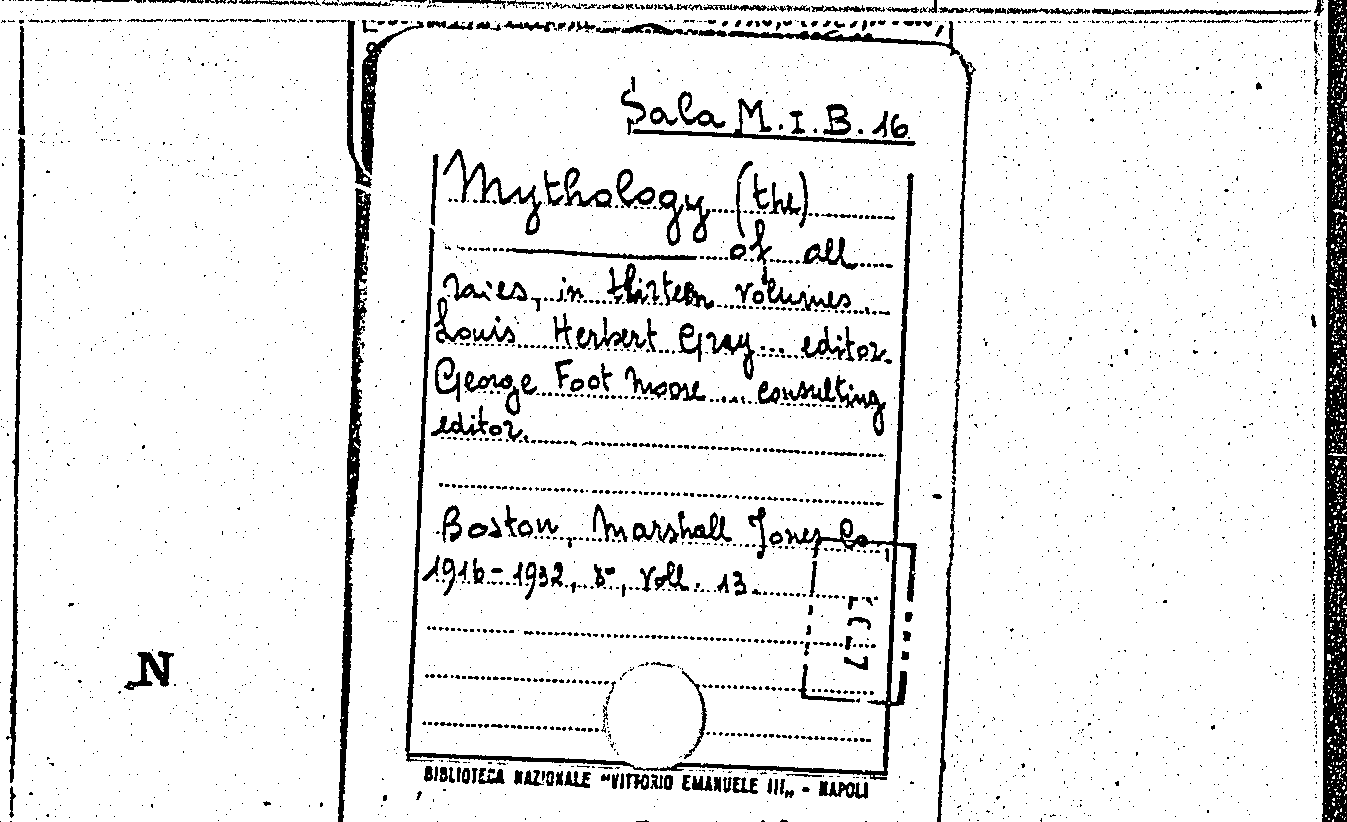 Sala M.I.B.16
Mythology (the)
of all
races, in thirteen volumes.
Louis Herbert Gray... editor.
George Foot Moore... consulting
editor.
Boston, Marshall Jones Co
1916-1932, 8°, voll. 13.
N
BIBLIOTECA NAZIONALE "VITTORIO EMANUELE III„ - NAPOLI